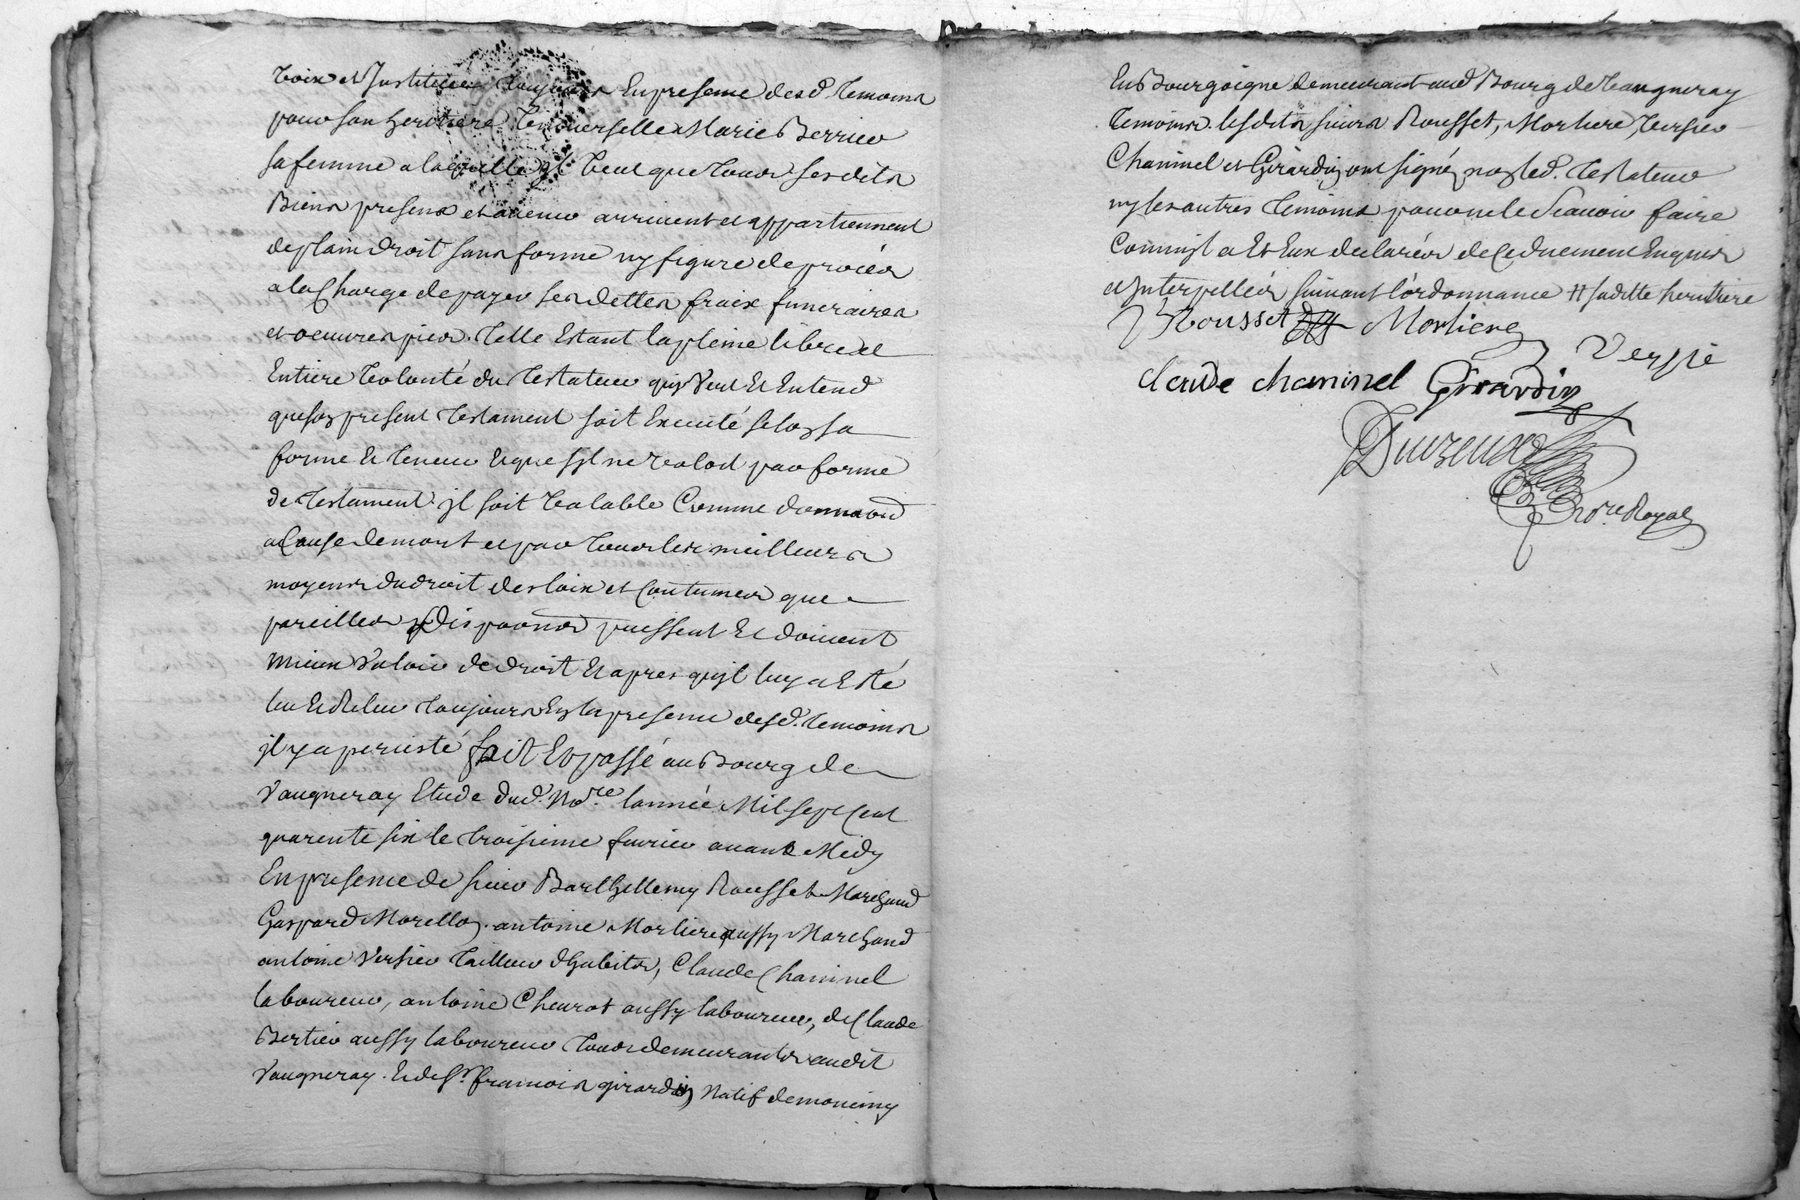 voix et Institue toujours En presence desd. temoins
pour son heritiere Universelle Marie Berrier
sa femme a laquelle Il veut que tous ses dits
Biens presens et avenir arrivent et appartiennent
de plain droit sans forme ny figure de procés
a la Charge de payer ses dettes fraix funeraires
et oeuvres pies. telle Estant la pleine libre et
Entiere volonté du testateur quy veut Et Entend
que son present testament soit Executé selon sa
forme Et teneur Et que s'jl ne valoit par forme
de testament jl soit valable Comme donnaon
a Cause de mort et par tous les meilleurs
moyens du droit des loix et Coutumes que
pareilles Disponons puissent Et doivent
mieux valoir de droit Et apres qu'jl luy a Esté
lu Et Relu toujours En la presence desd. temoins
jl y a persisté fait Et passé au Bourg de
Vaugneray Etude dud. No.re lannée Mil sept Cent
quarente six le troisieme fevrier avant Midy
En presence de sieur Barthellemy Rousset Marchand
Gaspard Morellon. antoine Morliere aussy Marchand
antoine Versier tailleur d'habits, Claude Chaninel
laboureur, antoine Cheurot aussy laboureur, de Claude
Bertier aussy laboureur tous demeurants audit
Vaugneray. Et de Sr. francois girardin Natif de
En Bourgoigne demeurant aud Bourg de Vaugneray
temoins. lesdits sieurs Rousset, Morliere, Versier
Chaninel et Girardin ont signé, non led. testateur
ny les autres temoins pour ne le scavoir faire
Comme jl a Et Eux declarés de Ce duement Enquis
et Interpellés suivant l'ordonnance # saditte heritiere
Rousset Morliere
Versie
claude chaninel Girardin
No.re Royal